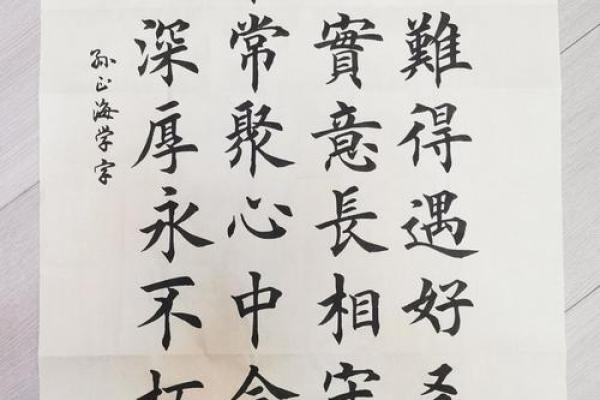 難得遇好
實意長相
常聚心中
深厚永不
孙正海学字